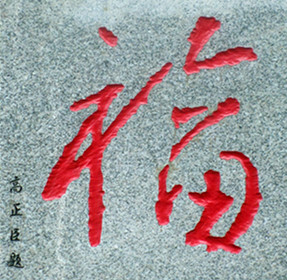 福
高正臣题